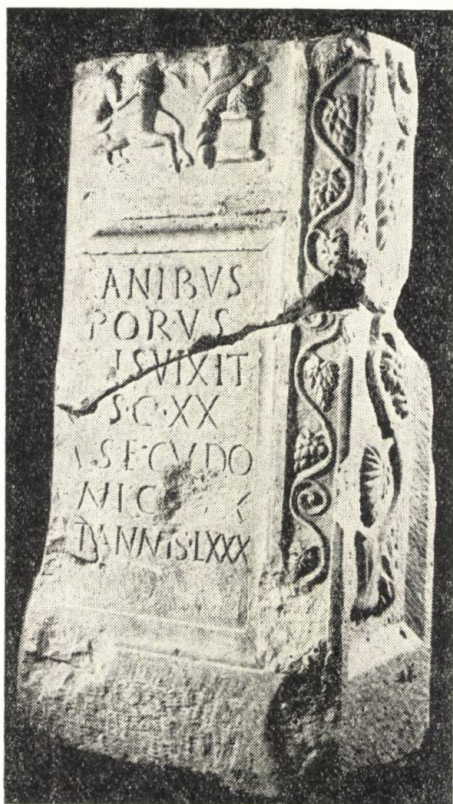 ANIBVS
PORVS
IS VIXIT
S·C·XX
SECVDO
NIC
ANNIS·LXXX